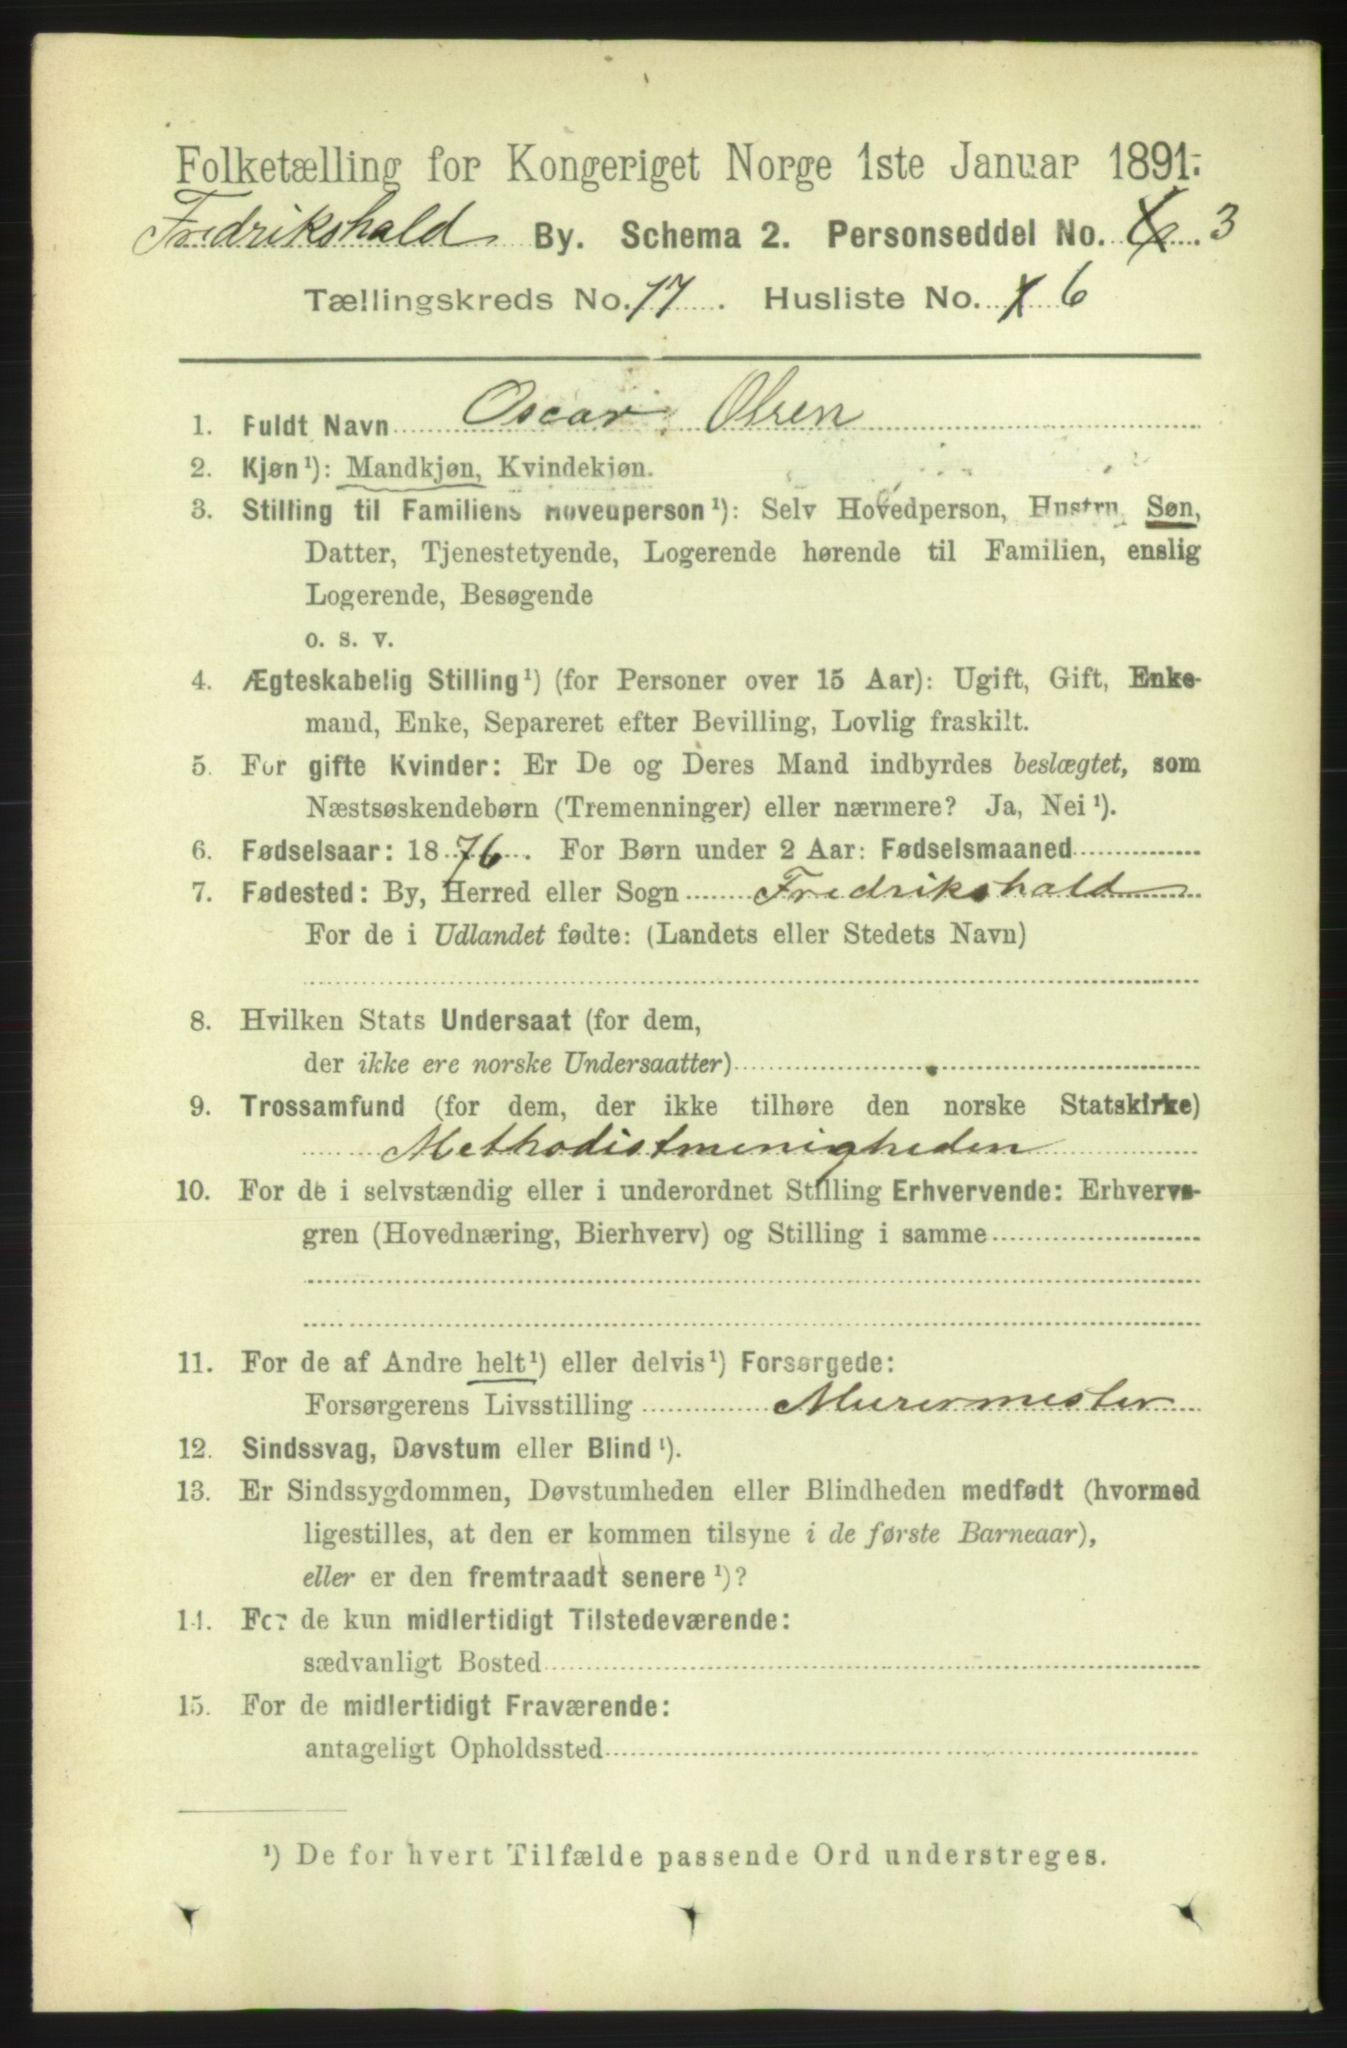 Folketælling for Kongeriget Norge 1ste Januar 1891.
Fredrikshald By. Schema 2. Personseddel No. 3
Tællingskreds No. 17. Husliste No. 6
1. Fuldt Navn Oscar Olsen
2. Kjøn¹): Mandkjøn, Kvindekjøn.
3. Stilling til Familiens Hovedperson¹): Selv Hovedperson, Hustru, Søn,
Datter, Tjenestetyende, Logerende hørende til Familien, enslig
Logerende, Besøgende
o. s. v.
4. Ægteskabelig Stilling¹) (for Personer over 15 Aar): Ugift, Gift, Enke-
mand, Enke, Separeret efter Bevilling, Lovlig fraskilt.
5. For gifte Kvinder: Er De og Deres Mand indbyrdes beslægtet, som
Næstsøskendebørn (Tremenninger) eller nærmere? Ja, Nei¹).
6. Fødselsaar: 1876. For Børn under 2 Aar: Fødselsmaaned
7. Fødested: By, Herred eller Sogn Fredrikshald
For de i Udlandet fødte: (Landets eller Stedets Navn)
8. Hvilken Stats Undersaat (for dem,
der ikke ere norske Undersaatter)
9. Trossamfund (for dem, der ikke tilhøre den norske Statskirke)
Methodistmenigheden
10. For de i selvstændig eller i underordnet Stilling Erhvervende: Erhvervs-
gren (Hovednæring, Bierhverv) og Stilling i samme
11. For de af Andre helt¹) eller delvis¹) Forsørgede:
Forsørgerens Livsstilling Murermester
12. Sindssvag, Døvstum eller Blind¹).
13. Er Sindssygdommen, Døvstumheden eller Blindheden medfødt (hvormed
ligestilles, at den er kommen tilsyne i de første Barneaar),
eller er den fremtraadt senere¹)?
14. For de kun midlertidigt Tilstedeværende:
sædvanligt Bosted
15. For de midlertidigt Fraværende:
antageligt Opholdssted
¹) De for hvert Tilfælde passende Ord understreges.